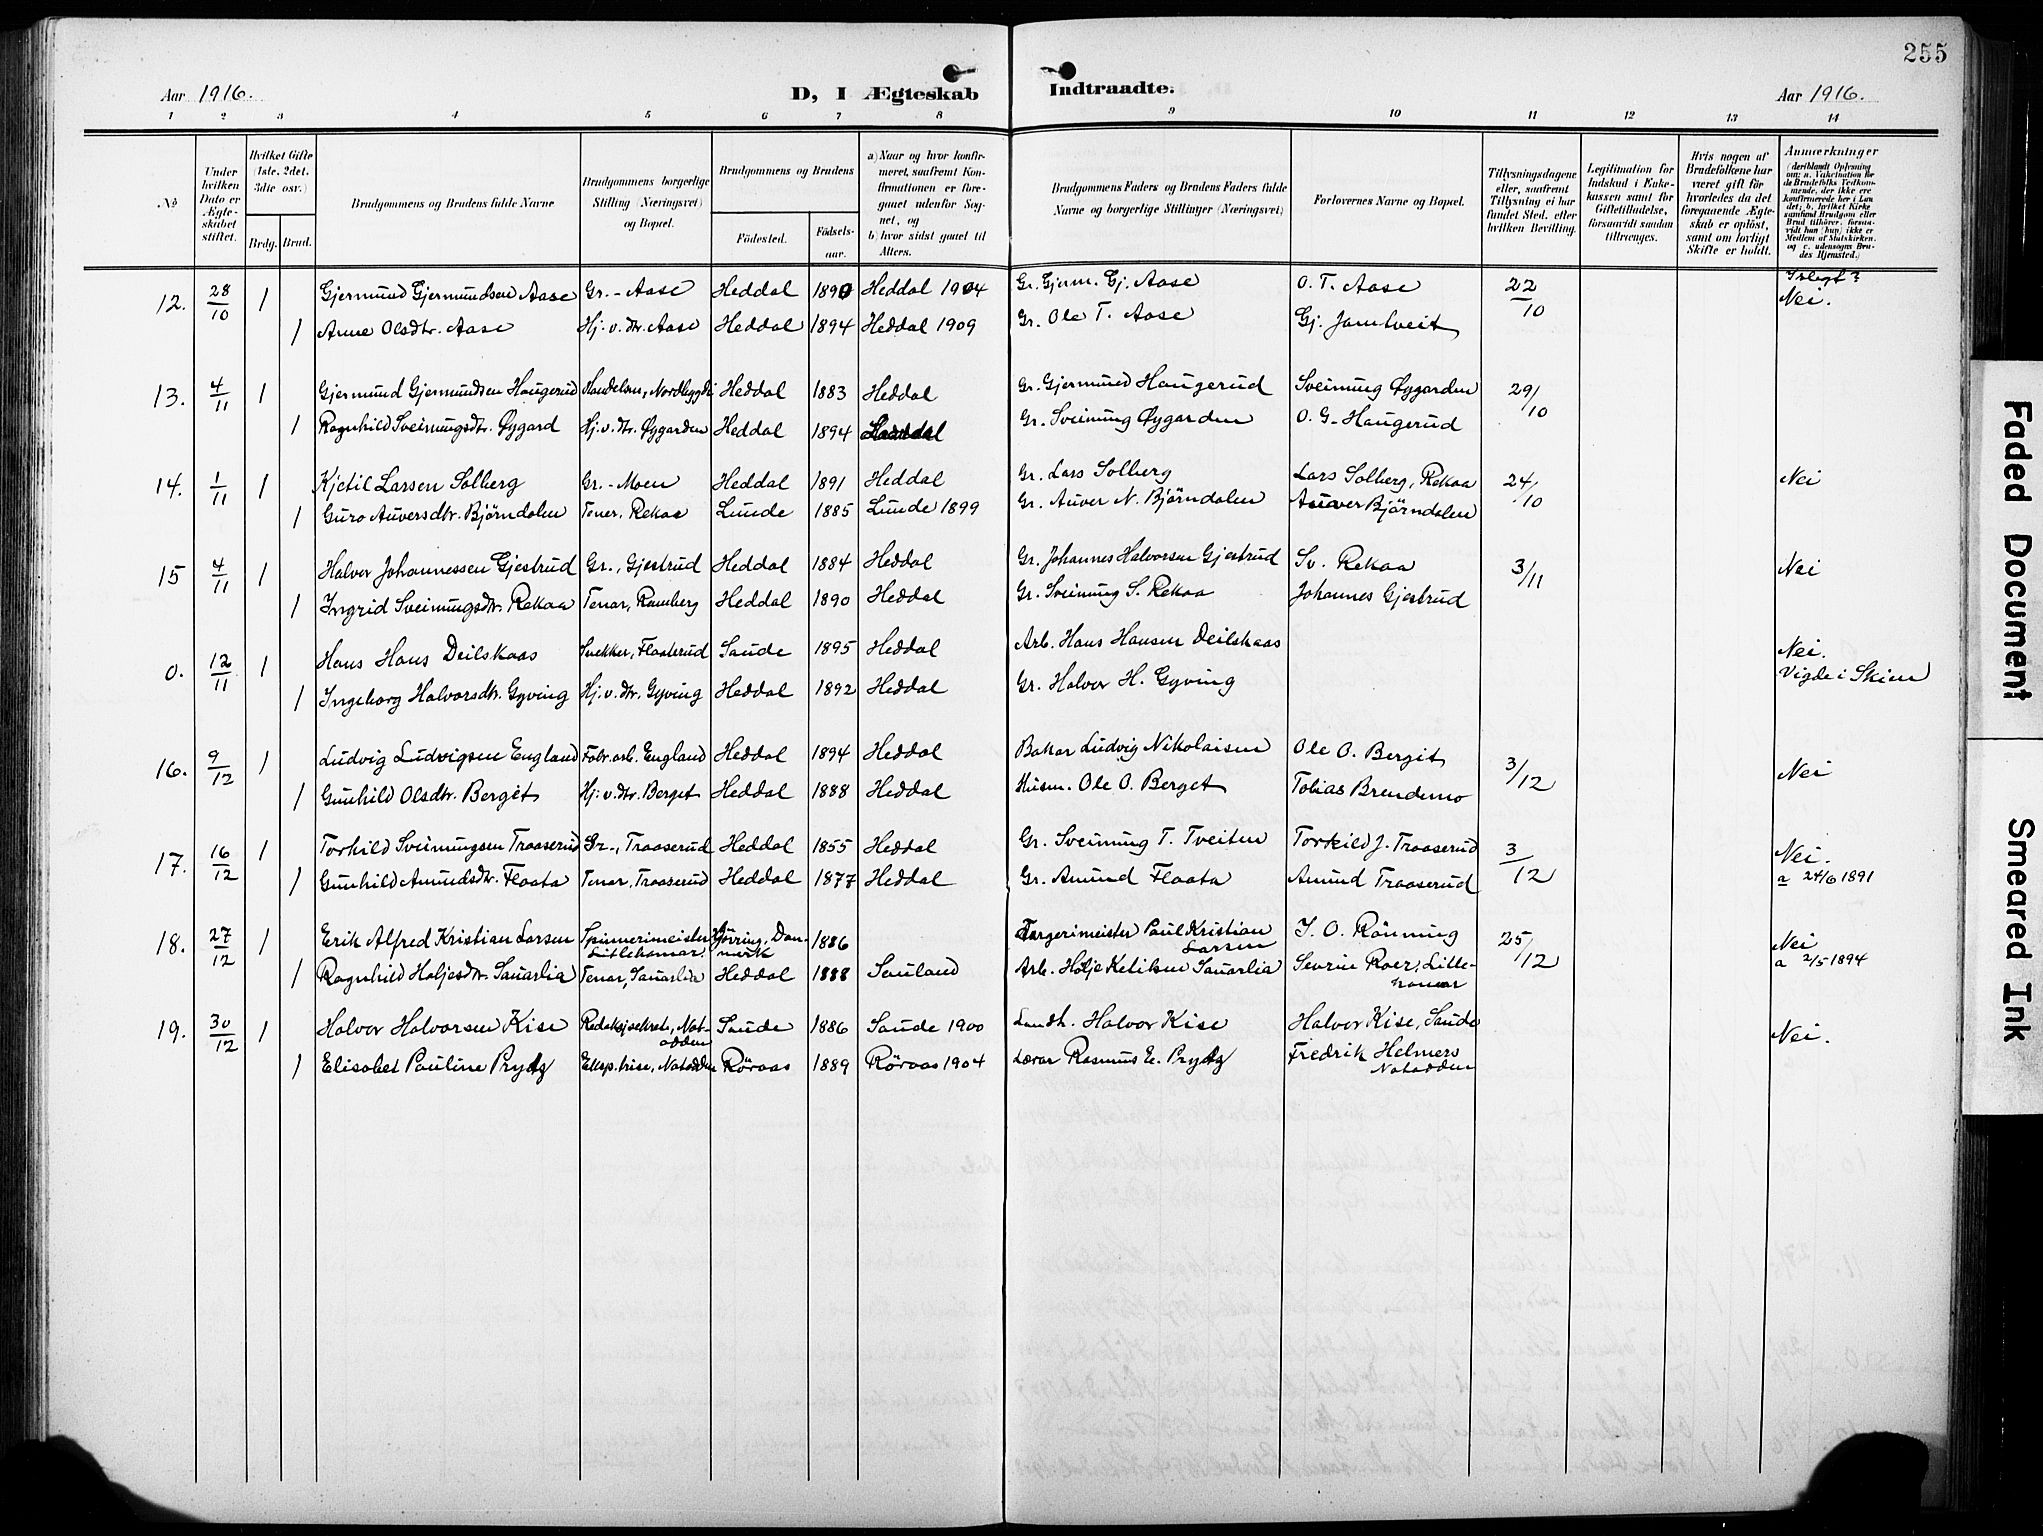 255
Aar 1916.
D, I Ægteskab Indtraadte.
Aar 1916.
1 2 3 4 5 6 7 8 9 10 11 12 13 14
No
Under hvilken Dato er Ægteskabet stiftet.
Hvilket Gifte (1ste, 2det, 3die osv.)
Brdg. Brud.
Brudgommens og Brudens fulde Navne
Brudgommens borgerlige Stilling (Næringsvei) og Bopæl.
Brudgommens og Brudens
Fødested.
Fødselsaar.
a) Naar og hvor konfirmeret, saafremt Konfirmationen er foregaaet udenfor Sognet, og
b) hvor sidst gaaet til Alters.
Brudgommens Faders og Brudens Faders fulde Navne og borgerlige Stillinger (Næringsvei)
Forlovernes Navne og Bopæl.
Tillysningsdagene eller, saafremt Tillysning ei har fundet Sted, efter hvilken Bevilling.
Legitimation for Indskud i Enkekassen samt for Giftetilladelse, forsaavidt saadan tiltrænges.
Hvis nogen af Brudefolkene har været gift før hvorledes da det foregaaende Ægteskab er opløst, samt om lovligt Skifte er holdt.
Anmærkninger
(deriblandt Oplysning om: a. Vakcination for de Brudefolks Vedkommende, der ikke ere konfirmerede her i Landet; b. hvilket Kirkesamfund Brudgom eller Brud tilhører, forsaavidt han (hun) ikke er Medlem af Statskirken, og c. udensogns Brudes Hjemsted.)
12. 28/10 1 Gjermund Gjermundsen Aase Gr. - Aase Heddal 1890 Heddal 1904 Gr. Gjerm. Gj. Aase O. T. Aase 22/10 I slegt? Nei.
1 Anne Olsdtr. Aase Hj. v. dtr. Aase Heddal 1894 Heddal 1909 Gr. Ole T. Aase Gj. Jamtveit
13. 4/11 1 Gjermund Gjermundsen Haugerud Handelsm., Nordbygdi Heddal 1883 Heddal Gr. Gjermund Haugerud Sveinung Øygarden 29/10
1 Ragnhild Sveinungsdtr. Øygard Hj. v. dtr. Øygarden Heddal 1894 Heddal Gr. Sveinung Øygarden O. G. Haugerud
14. 1/11 1 Kjetil Larsen Solberg Gr. - Moen Heddal 1891 Heddal Gr. Lars Solberg Lars Solberg, Rekaa 24/10 Nei
1 Guro Auversdtr. Bjørndalen Tener, Rekaa Lunde 1885 Lunde 1899 Gr. Auver N. Bjørndalen Auver Bjørndalen
15 4/11 1 Halvor Johannessen Gjestrud Gr., Gjestrud Heddal 1884 Heddal Gr. Johannes Halvorsen Gjestrud Sv. Rekaa 3/11 Nei
1 Ingrid Sveinungsdtr. Rekaa Tenar, Ramberg Heddal 1890 Heddal Gr. Sveinung S. Rekaa Johannes Gjestrud
0. 12/11 1 Hans Hans Deilskaas Snekker, Flaaterud Saude 1895 Heddal Arb. Hans Hansen Deilskaas Nei.
1 Ingeborg Halvorsdtr. Gyving Hj. v. dtr. Gyving Heddal 1892 Heddal Gr. Halvor H. Gyving Vigde i Skien
16. 9/12 1 Ludvig Ludvigsen England Fabr. arb. England Heddal 1894 Heddal Bakar Ludvig Nikolaisen Ole O. Bergit 3/12 Nei
1 Gunhild Olsdtr. Berget Hj. v. dtr. Berget Heddal 1888 Heddal Husm. Ole O. Berget Tobias Brendemo
17. 16/12 1 Torkild Sveinungsen Traaserud Gr., Traaserud Heddal 1855 Heddal Gr. Sveinung T. Tveiten Torkild J. Traaserud 3/12 Nei.
1 Gunhild Amundsdtr. Flaata Tenar, Traaserud Heddal 1877 Heddal Gr. Amund Flaata Amund Traaserud a 24/6 1891
18. 27/12 1 Erik Alfred Kristian Larsen Spinnerimeister Litlehamar Hjörring, Danmerk 1886 Fargerimeister Paul Kristian Larsen I. O. Rönning 25/12 Nei
1 Ragnhild Holjesdtr. Sauarlia Tenar, Sauarlia Heddal 1888 Sauland Arb. Holje Ketilsen Sauarlia Sevrin Roer, Littehamar a 2/5 1894
19. 30/12 1 Halvor Halvorsen Kise Redaksjsekret., Notodden Saude 1886 Saude 1900 Landh. Halvor Kise Halvor Kise, Saude Nei.
1 Elisabet Pauline Prytz Eksp.trise, Notodden Röraas 1889 Röraas 1904 Lærar Rasmus E. Prytz Fredrik Helmers Notodden
Faded Document
Smeared Ink